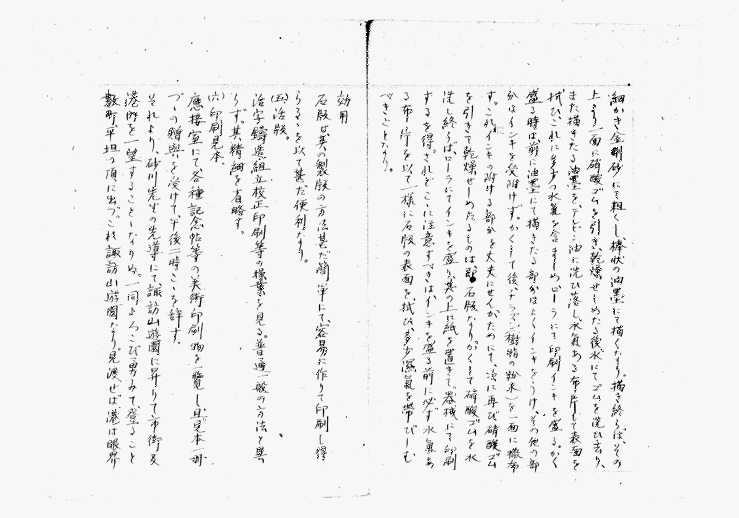 細かき金剛砂にて粗くし、棒狀の油墨にて描くなり。描き終らば、その
上より一面に硝酸ゴムを引き、乾燥せしめたる後水にてゴムを洗ひ去り、
また描きたる油墨をテレビン油に洗ひ落し、水氣ある布片にて表面を
拭ひ、これに多少の水氣を含ましめローラにて印刷インキを盛る。かく
盛る時は前に油墨にて描きたる部分はよくインキをうけ、その他の部
分はインキを受附けず。かくして後、ナラズ(樹脂の粉末)を一面に撒布
す。これインキの附ける部分を丈夫にせんがためにて、次に再び硝酸ゴム
を引きて乾燥せしめたるものは即石版なり。かくて硝酸ゴムを水
洗し終らばローラにてインキを盛り、其の上に紙を置きて、器械にて印刷
するを得されどこゝに注意すべきはインキを盛る前に必ず水氣あ
る布片を以て一樣に石版の表面を拭ひ多少濕氣を帶びしむ
べきことなり。
効用
石版は其の製版の方法甚だ簡單にて、容易に作りて印刷し得
らるゝを以て甚だ便利なり。
(五)活版。
活字鑄造、組立、校正、印刷等の操業を見る。普通一般の方法と異
らず。其精細を省略す。
(六)印刷見本。
應接室にて各種記念帖等の美術印刷物を一覽し、且見本一册
づゝの贈與を受けて、午後二時こゝを辞す。
それより、砂川先生の先導にて、諏訪山遊園に昇りて市街及
港内を一望することゝなりぬ。一同よろこび勇みて登ること
數町、平坦の頂に出づ。これ諏訪山遊園なり。見渡せば港は眼界